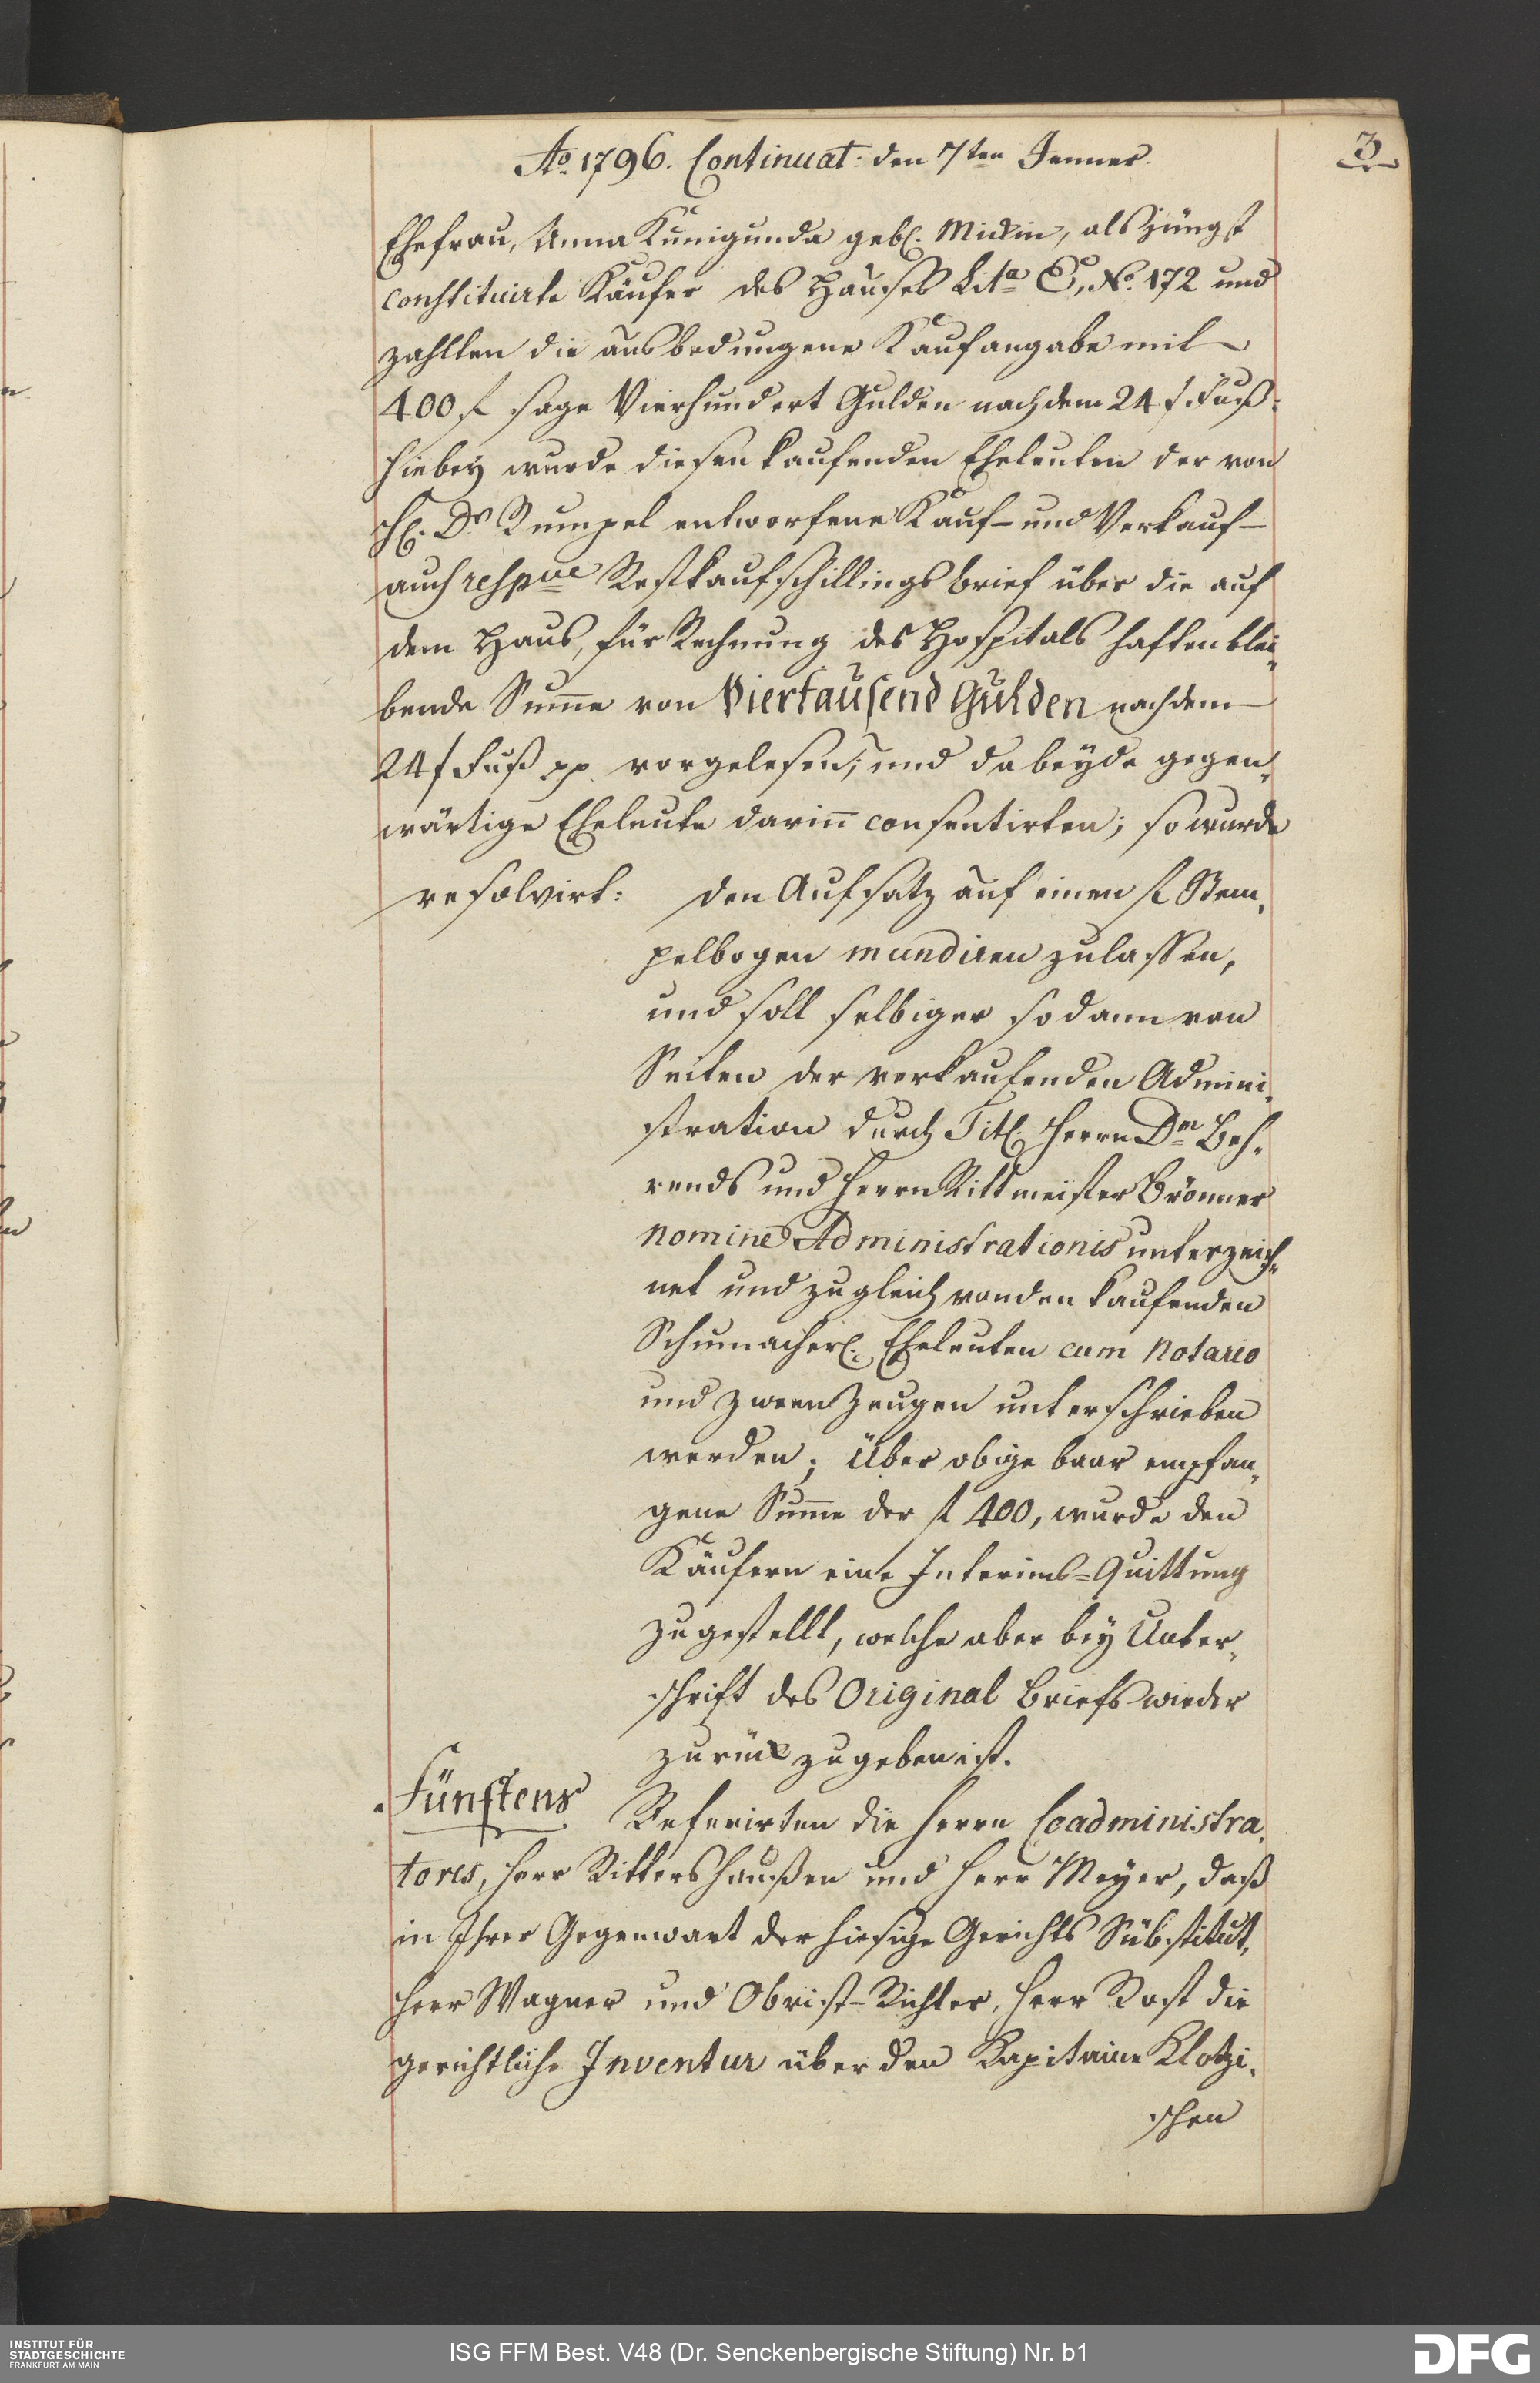 Ao. 1796. Continuat: den 7ten Jenner.
3
Ehefrau, Anna Kunigunda gebl. Mickin, als jüngst
constituirte Käufer des Hauses Lita. E, No. 172 und
zahlten die ausbedungene Kaufangabe mit
400 f sage Vierhundert Gulden nach dem 24 f. Fuß.
Hiebey wurde diesen kaufenden Eheleuten der von
H. Dr. Rumpel entworfene Kauf- und Verkauf-
auch respve Restkaufschillingsbrief über die auf
dem Haus, für Rechnung des Hospitals haften blei-
bende Summe von Viertausend Gulden nach dem
24 f Fuß pp. vorgelesen; und da beyde gegen-
wärtige Eheleute darinn consentirten; so wurde
resolvirt: den Aufsatz auf einen f Stem-
pelbogen mundiren zulassen,
und soll selbiger sodann von
Seiten der verkaufenden Admini-
stration durch Titl. Herrn Dm. Beh-
rends und Herrn Rittmeister Brönner
nomine Administrationis unterzeich-
net und zugleich von den kaufenden
Schumacherl. Eheleuten cum Notario
und zween Zeugen unterschrieben
werden; Über obige baar empfan-
gene Summe der f 400, wurde den
Käufern eine Interims-Quittung
zugestellt, welche aber bey Unter-
schrift des Original Briefs wieder
zurück zugeben ist.
Fünftens
Referirten die Herrn Coadministra-
tores, Herr Rittershaußen und Herr Meyer, daß
in Ihrer Gegenwart der hiesige Gerichts Substitut,
Herr Wagner und Obrist-Richter, Herr Rost die
gerichtliche Inventur über den Kapitaine Klotzi-
schen
INSTITUT FÜR
STADTGESCHICHTE
FRANKFURT AM MAIN
ISG FFM Best. V48 (Dr. Senckenbergische Stiftung) Nr. b1
DFG